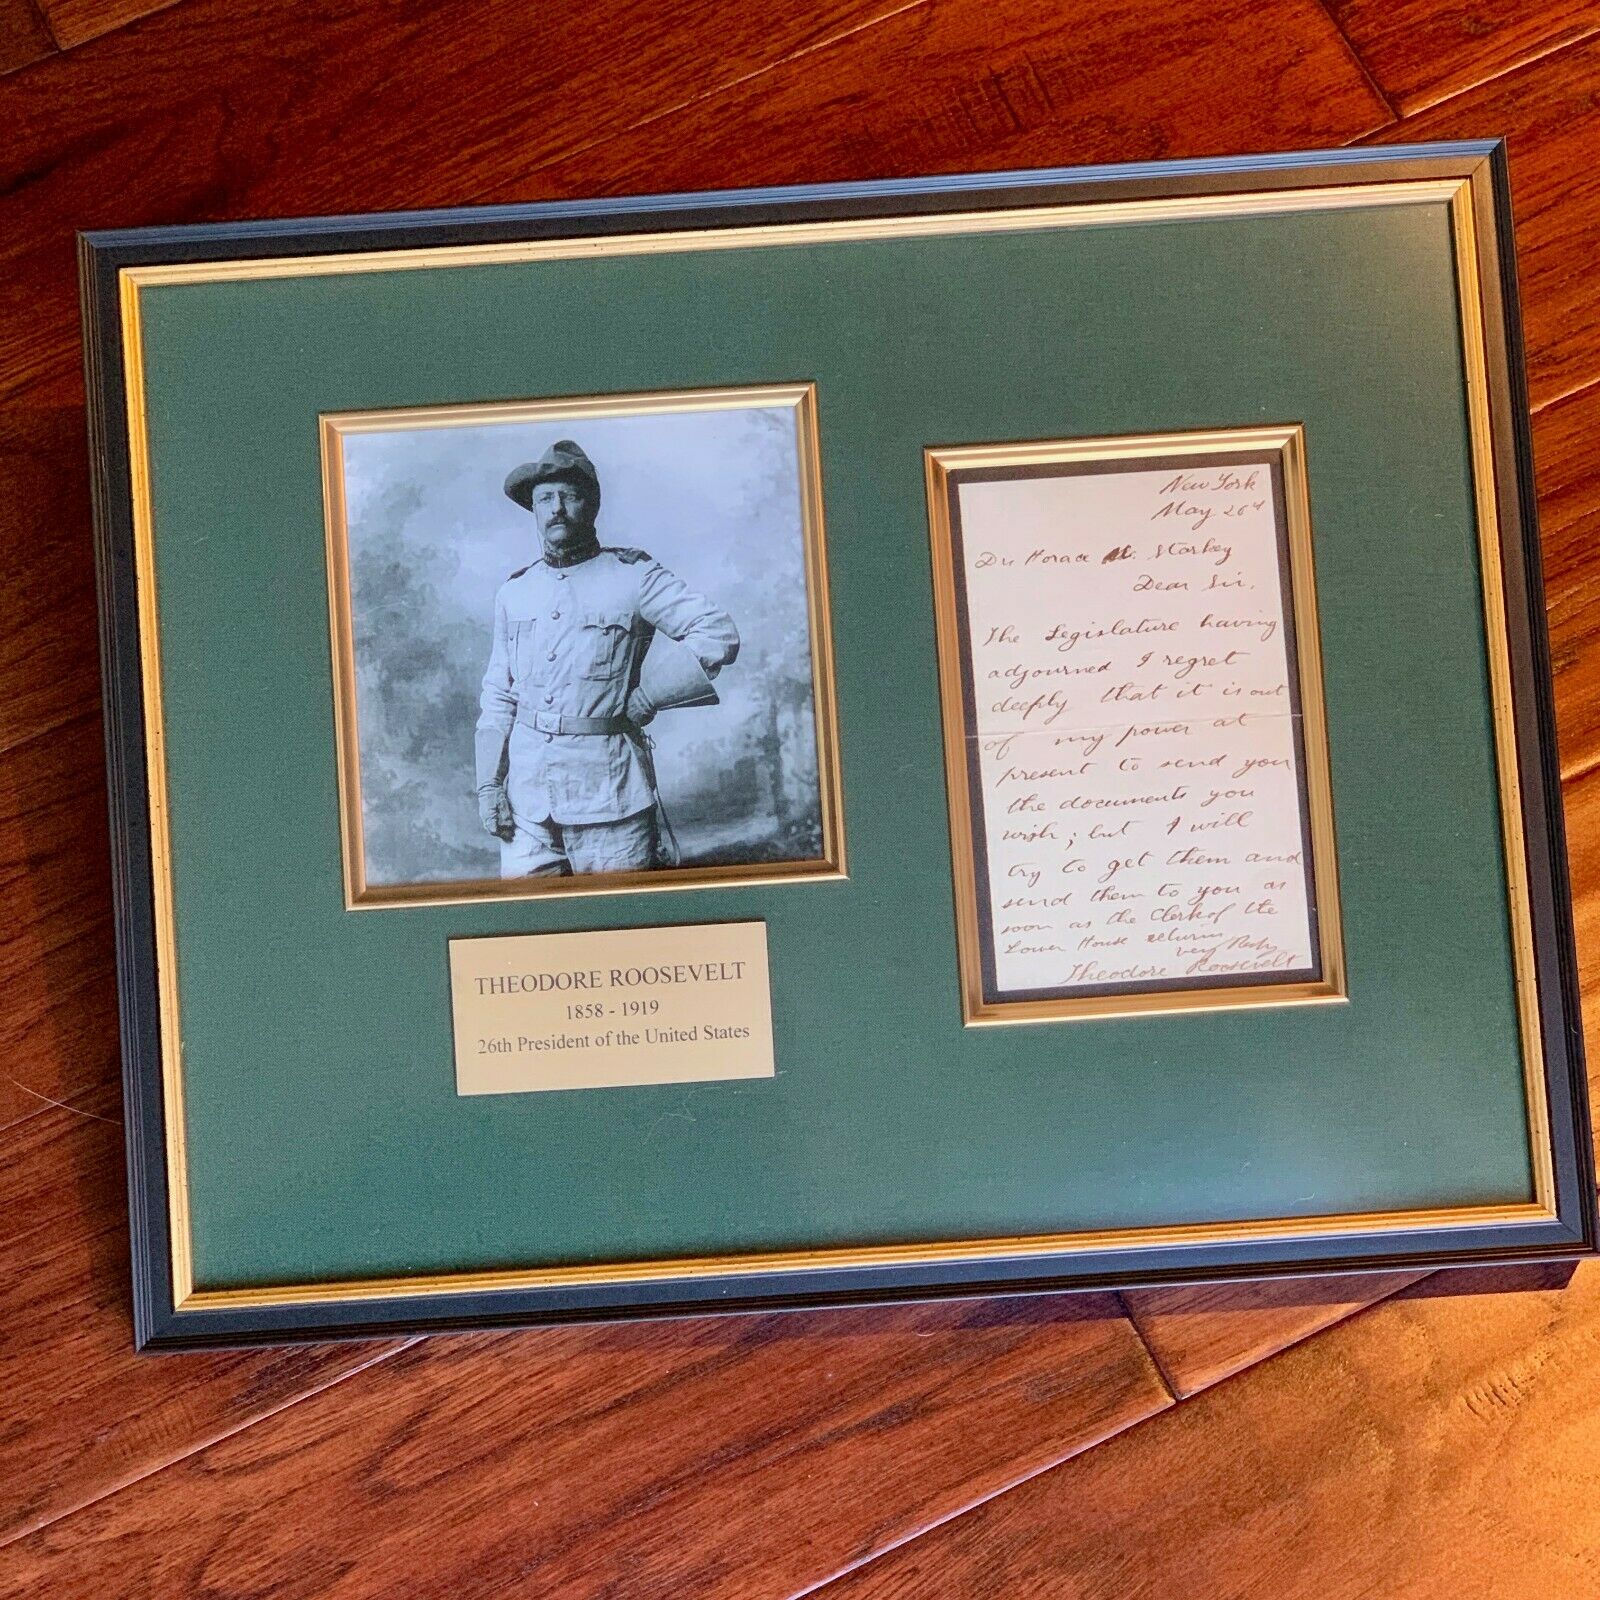 THEODORE ROOSEVELT
1858 - 1919
26th President of the United States
New York
May 26th
Dr. Horace Starkey
Dear Sir,
The Legislature having
adjourned I regret
deeply that it is out
of my power at
present to send you
the documents you
wish; but I will
try to get them and
send them to you as
soon as the Clerk of the
Lower House returns
very
Theodore Roosevelt